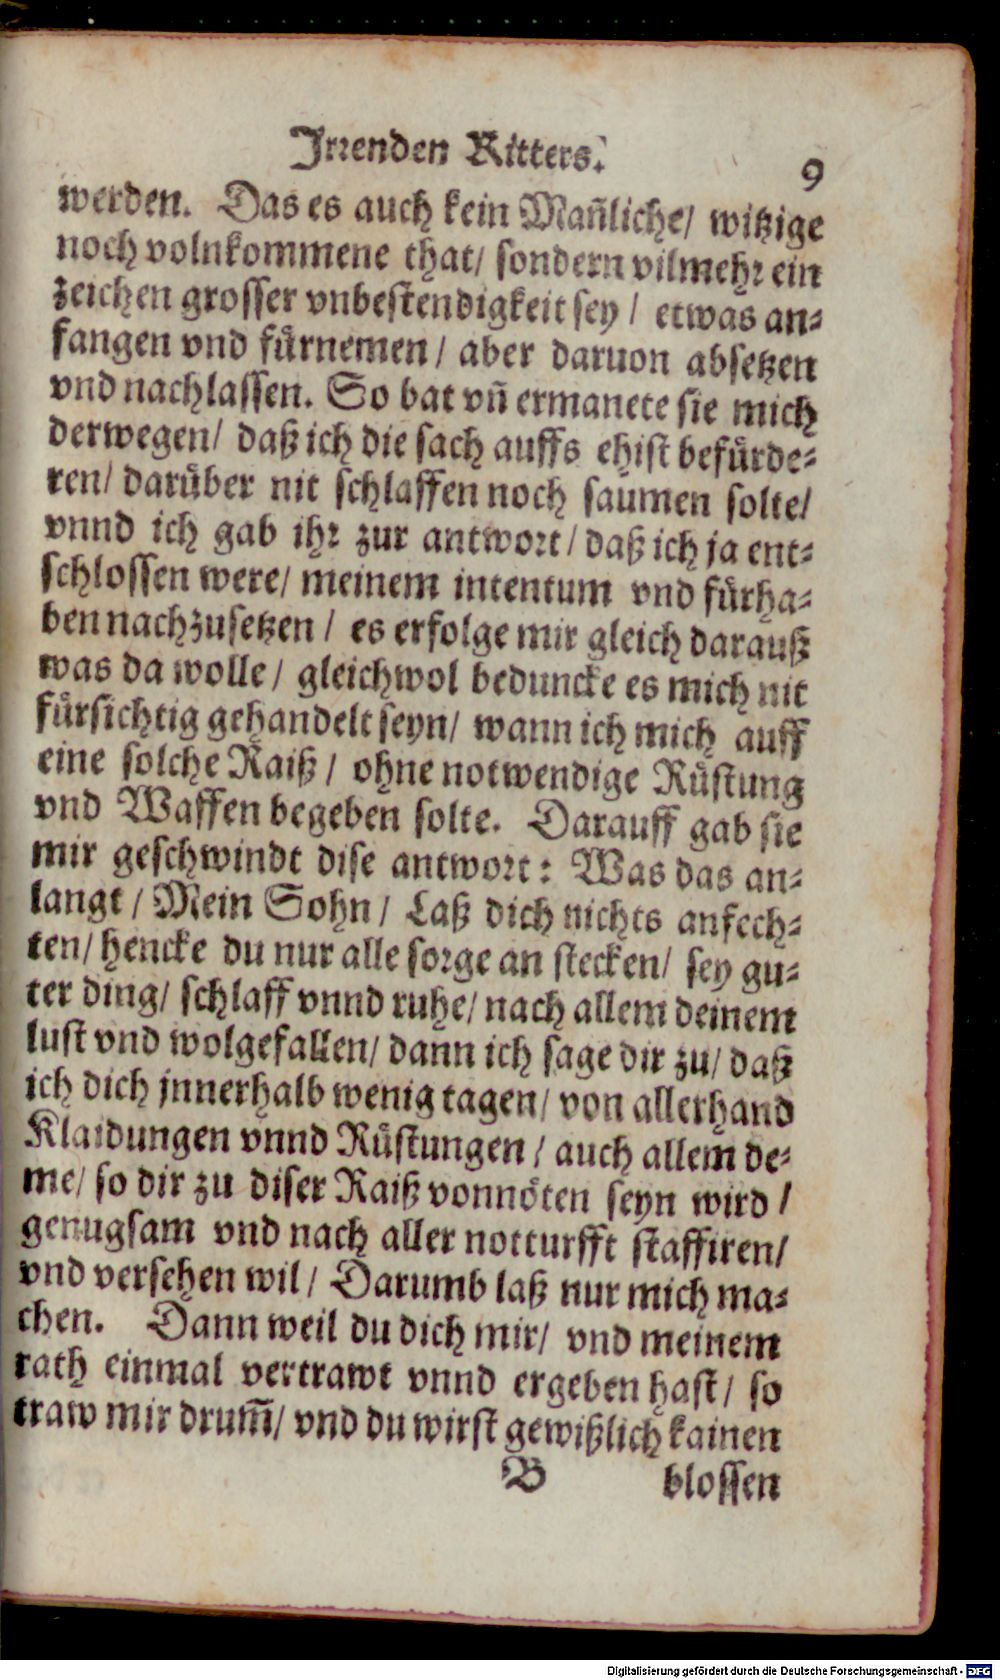 Irrenden Ritters.
9
werden. Das es auch kein Mañliche/ witzige
noch volnkommene that/ sondern vilmehr ein
zeichen grosser vnbestendigkeit sey / etwas an-
fangen vnd fürnemen / aber daruon absetzen
vnd nachlassen. So bat vñ ermanete sie mich
derwegen/ daß ich die sach auffs ehist befürde-
ren/ darüber nit schlaffen noch saumen solte/
vnnd ich gab ihr zur antwort / daß ich ja ent-
schlossen were/ meinem intentum vnd fürha-
ben nachzusetzen / es erfolge mir gleich darauß
was da wolle / gleichwol beduncke es mich nit
fürsichtig gehandelt seyn/ wann ich mich auff
eine solche Raiß / ohne notwendige Rüstung
vnd Waffen begeben solte. Darauff gab sie
mir geschwindt dise antwort: Was das an-
langt / Mein Sohn / Laß dich nichts anfech-
ten/ hencke du nur alle sorge an stecken/ sey gu-
ter ding/ schlaff vnnd ruhe/ nach allem deinem
lust vnd wolgefallen/ dann ich sage dir zu/ daß
ich dich jnnerhalb wenig tagen/ von allerhand
Klaidungen vnnd Rüstungen / auch allem de-
me/ so dir zu diser Raiß vonnöten seyn wird /
genugsam vnd nach aller notturfft staffiren/
vnd versehen wil / Darumb laß nur mich ma-
chen. Dann weil du dich mir/ vnd meinem
rath einmal vertrawt vnnd ergeben hast / so
traw mir drum̃/ vnd du wirst gewißlich kainen
B blossen
Digitalisierung gefördert durch die Deutsche Forschungsgemeinschaft - DFG